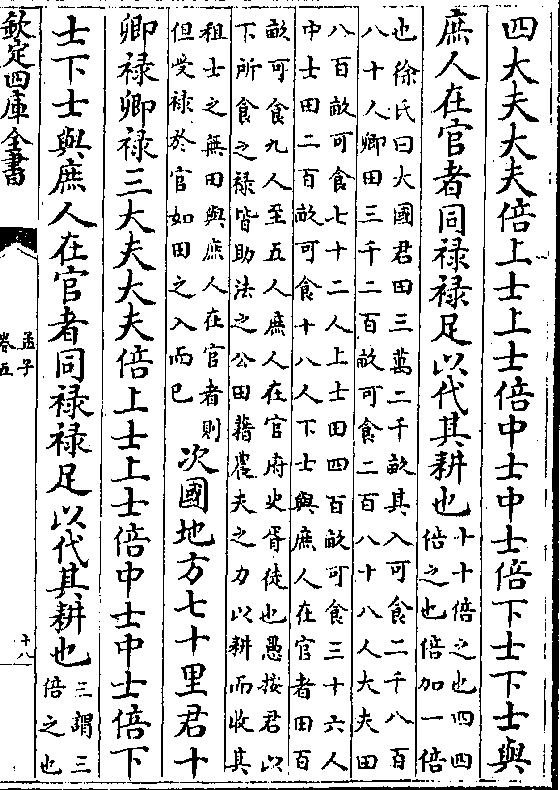 四大夫大夫倍上士上士倍中士中士倍下士下士與
庶人在官者同禄禄足以代其耕也
十十倍之也四四
倍之也倍加一倍
也徐氏曰大國君田三萬二千畝其入可食二千八百
八十人卿田三千二百畝可食二百八十八人大夫田
八百畝可食七十二人上士田四百畝可食三十六人
中士田二百畝可食十八人下士與庶人在官者田百
畝可食九人至五人庶人在官府史胥徒也愚按君以
下所食之禄皆助法之公田藉農夫之力以耕而收其
租士之無田與庶人在官者則
但受禄於官如田之入而已
次國地方七十里君十
卿禄卿禄三大夫大夫倍上士上士倍中士中士倍下
士下士與庶人在官者同禄禄足以代其耕也
三謂三
倍之也
欽定四庫全書
孟子
卷五
十八